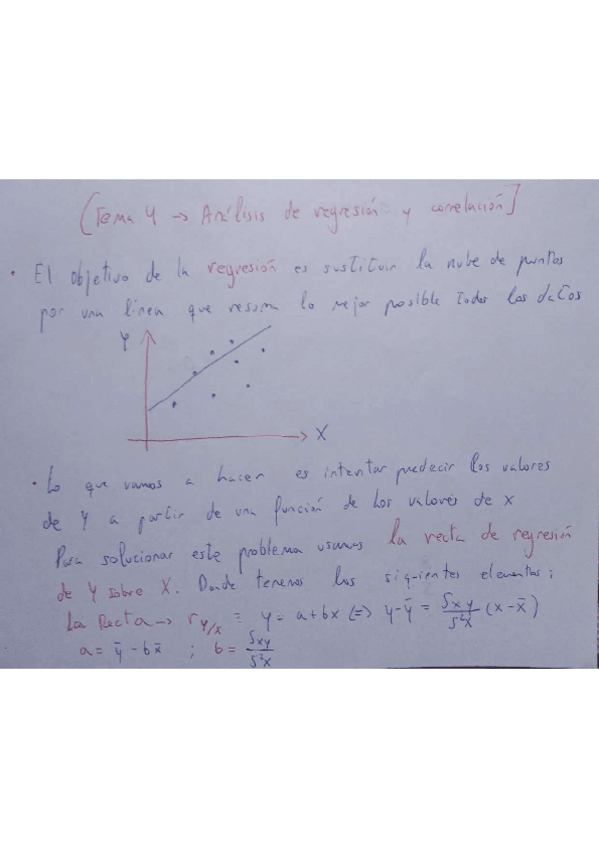 [Tema 4 → Análisis de regresión y correlación]
• El objetivo de la regresión es sustituir la nube de puntos
por una línea que resuma lo mejor posible todos los datos
Y
X
• Lo que vamos a hacer es intentar predecir los valores
de Y a partir de una función de los valores de x
Para solucionar este problema usamos la recta de regresión
de Y sobre X. Donde tenemos los siguientes elementos:
La Recta → r y/x ≡ y = a + bx (=) y - ȳ = Sxy/S²x (x - x̄)
a = ȳ - bx̄ ; b = Sxy/S²x